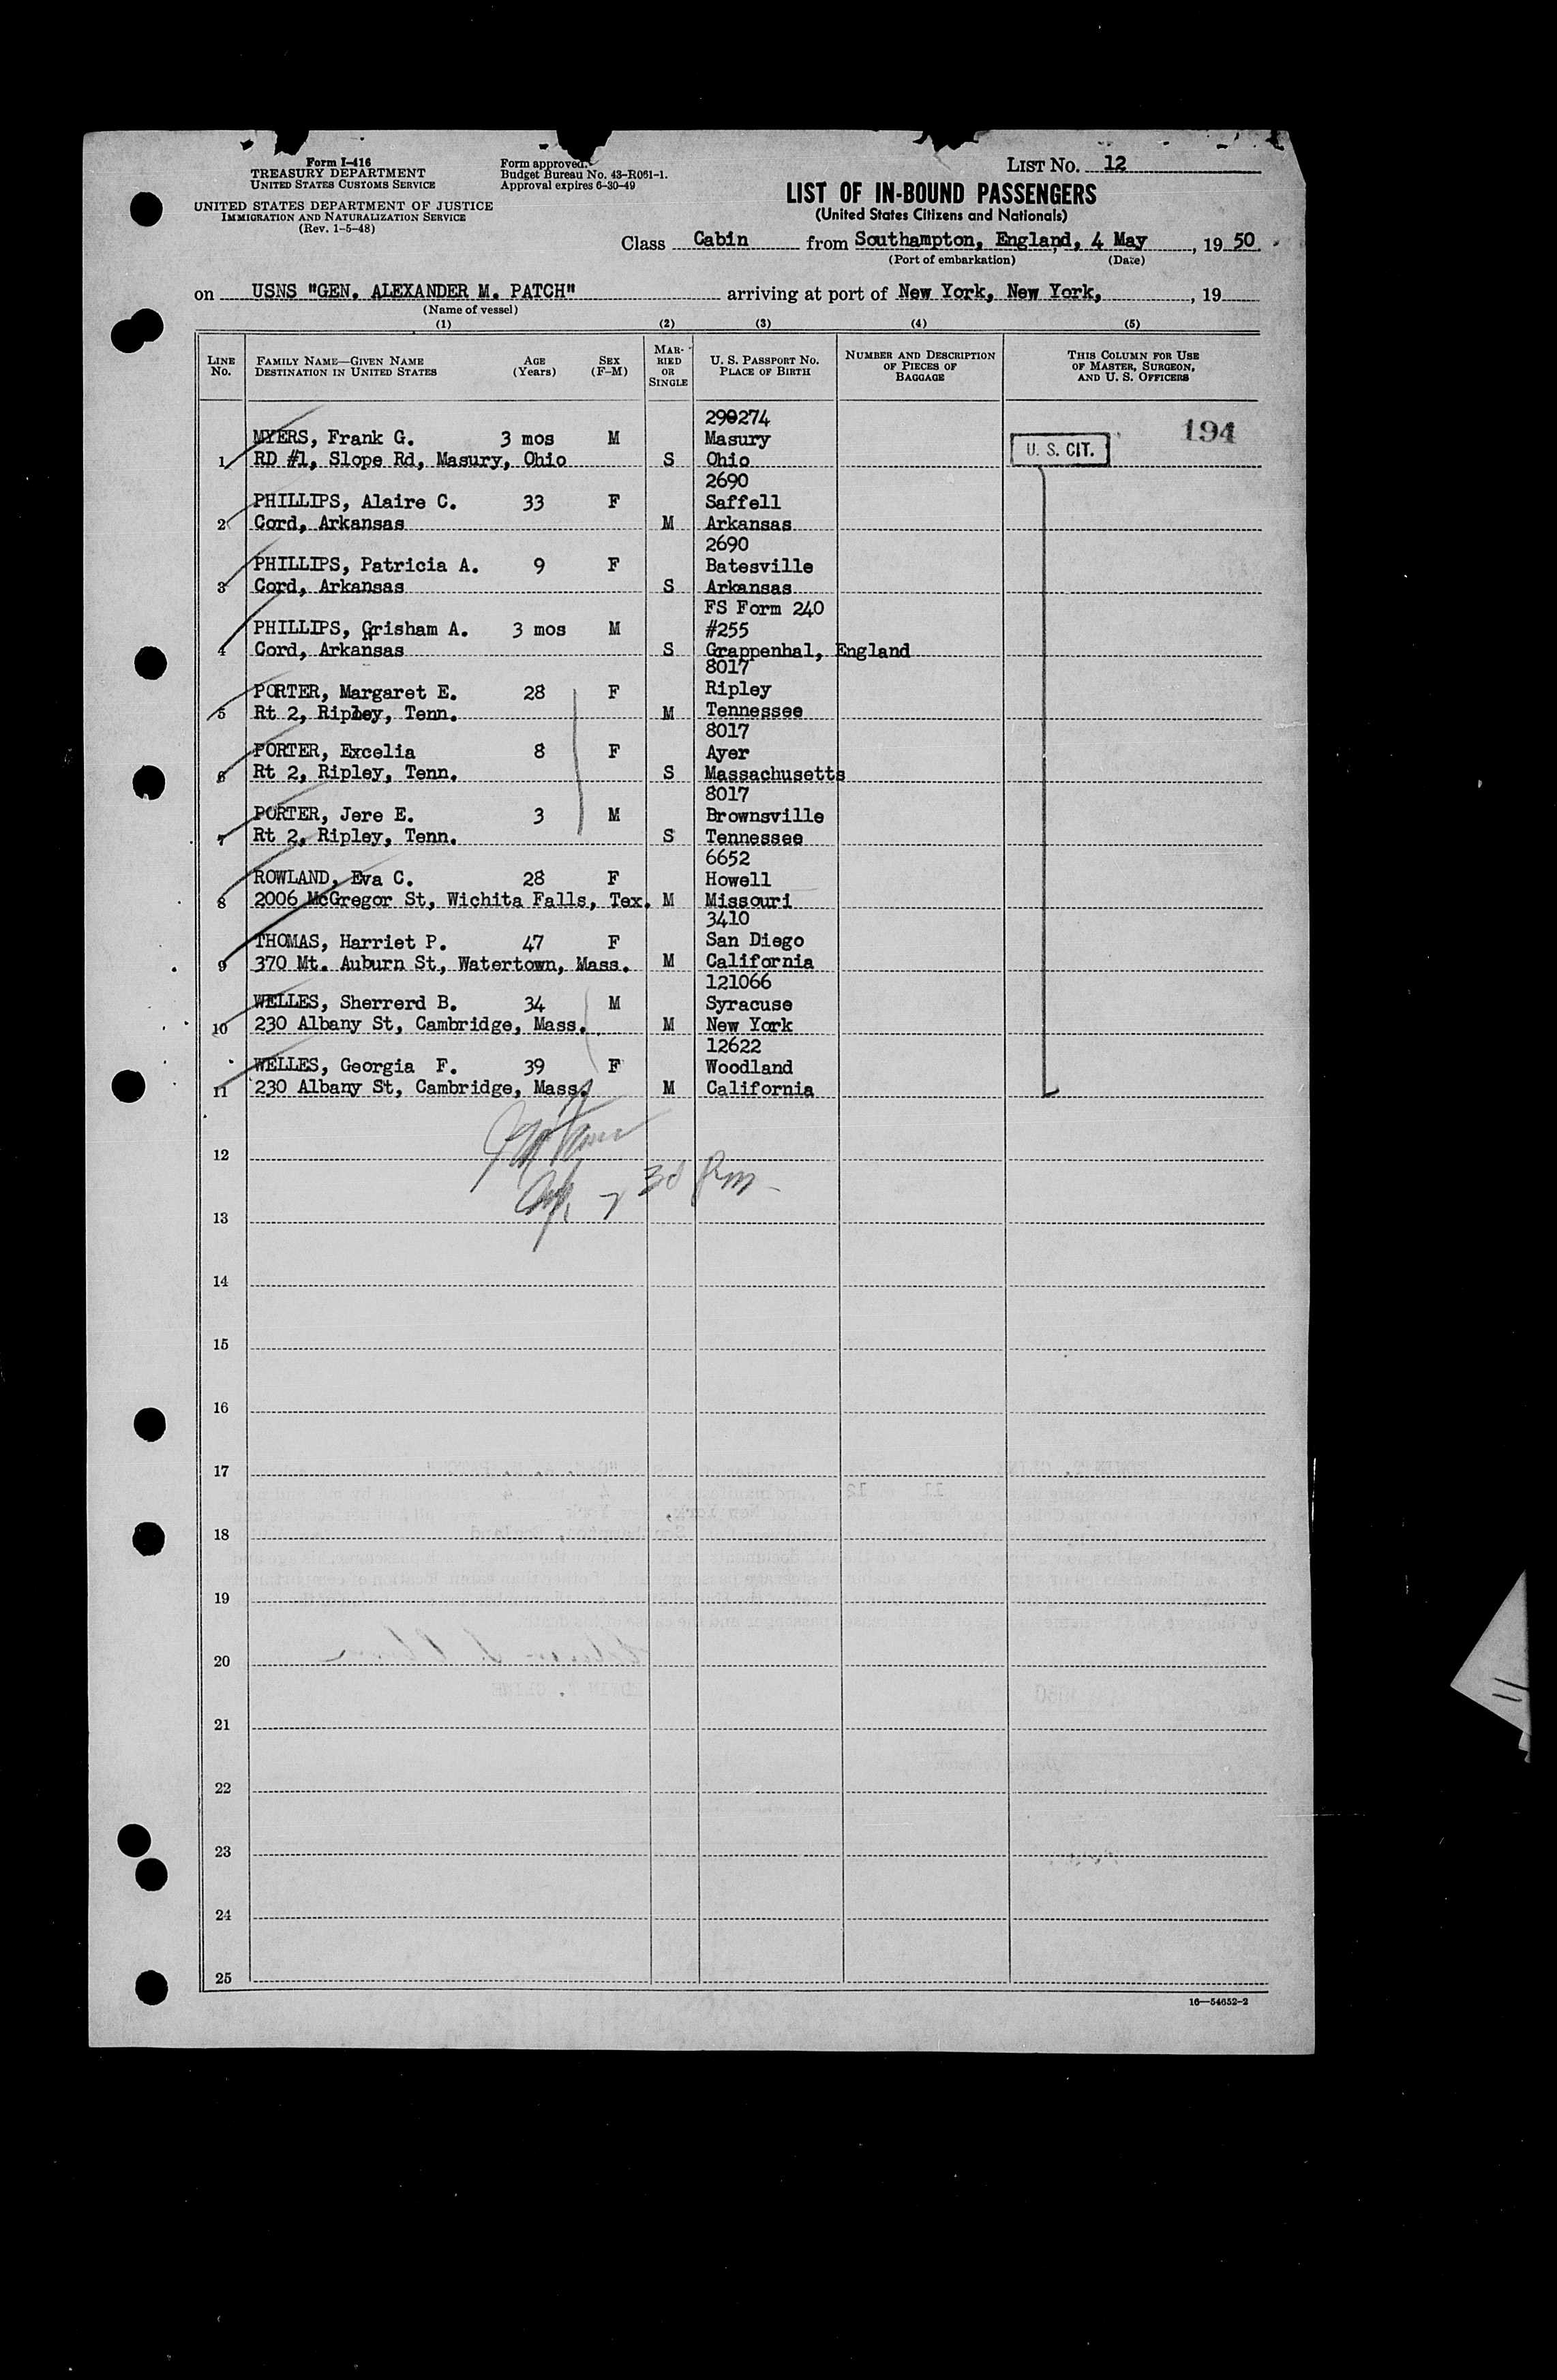 Form I-416
TREASURY DEPARTMENT
UNITED STATES CUSTOMS SERVICE
UNITED STATES DEPARTMENT OF JUSTICE
IMMIGRATION AND NATURALIZATION SERVICE
(Rev. 1-5-48)
Form approved.
Budget Bureau No. 43-R061-1.
Approval expires 6-30-49
LIST NO. 12
LIST OF IN-BOUND PASSENGERS
(United States Citizens and Nationals)
Class Cabin from Southampton, England, 4 May, 19 50
(Port of embarkation) (Date)
on USNS "GEN. ALEXANDER M. PATCH" arriving at port of New York, New York, , 19
(Name of vessel)
(1) (2) (3) (4) (5)
LINE No. FAMILY NAME—GIVEN NAME DESTINATION IN UNITED STATES AGE (Years) SEX (F-M) MARRIED OR SINGLE U. S. PASSPORT NO. PLACE OF BIRTH NUMBER AND DESCRIPTION OF PIECES OF BAGGAGE THIS COLUMN FOR USE OF MASTER, SURGEON, AND U. S. OFFICERS
290274
MYERS, Frank G. 3 mos M Masury U. S. CIT. 194
1 RD #1, Slope Rd, Masury, Ohio S Ohio
2690
PHILLIPS, Alaire C. 33 F Saffell
2 Cord, Arkansas M Arkansas
2690
PHILLIPS, Patricia A. 9 F Batesville
3 Cord, Arkansas S Arkansas
FS Form 240
PHILLIPS, Grisham A. 3 mos M #255
4 Cord, Arkansas S Grappenhal, England
8017
PORTER, Margaret E. 28 F Ripley
5 Rt 2, Ripley, Tenn. M Tennessee
8017
PORTER, Excelia 8 F Ayer
6 Rt 2, Ripley, Tenn. S Massachusetts
8017
PORTER, Jere E. 3 M Brownsville
7 Rt 2, Ripley, Tenn. S Tennessee
6652
ROWLAND, Eva C. 28 F Howell
8 2006 McGregor St, Wichita Falls, Tex. M Missouri
3410
THOMAS, Harriet P. 47 F San Diego
9 370 Mt. Auburn St, Watertown, Mass. M California
121066
WELLES, Sherrerd B. 34 M Syracuse
10 230 Albany St, Cambridge, Mass. M New York
12622
WELLES, Georgia F. 39 F Woodland
11 230 Albany St, Cambridge, Mass. M California
12
7 30 Pm
13
14
15
16
17
18
19
20
21
22
23
24
25
16—54652-2